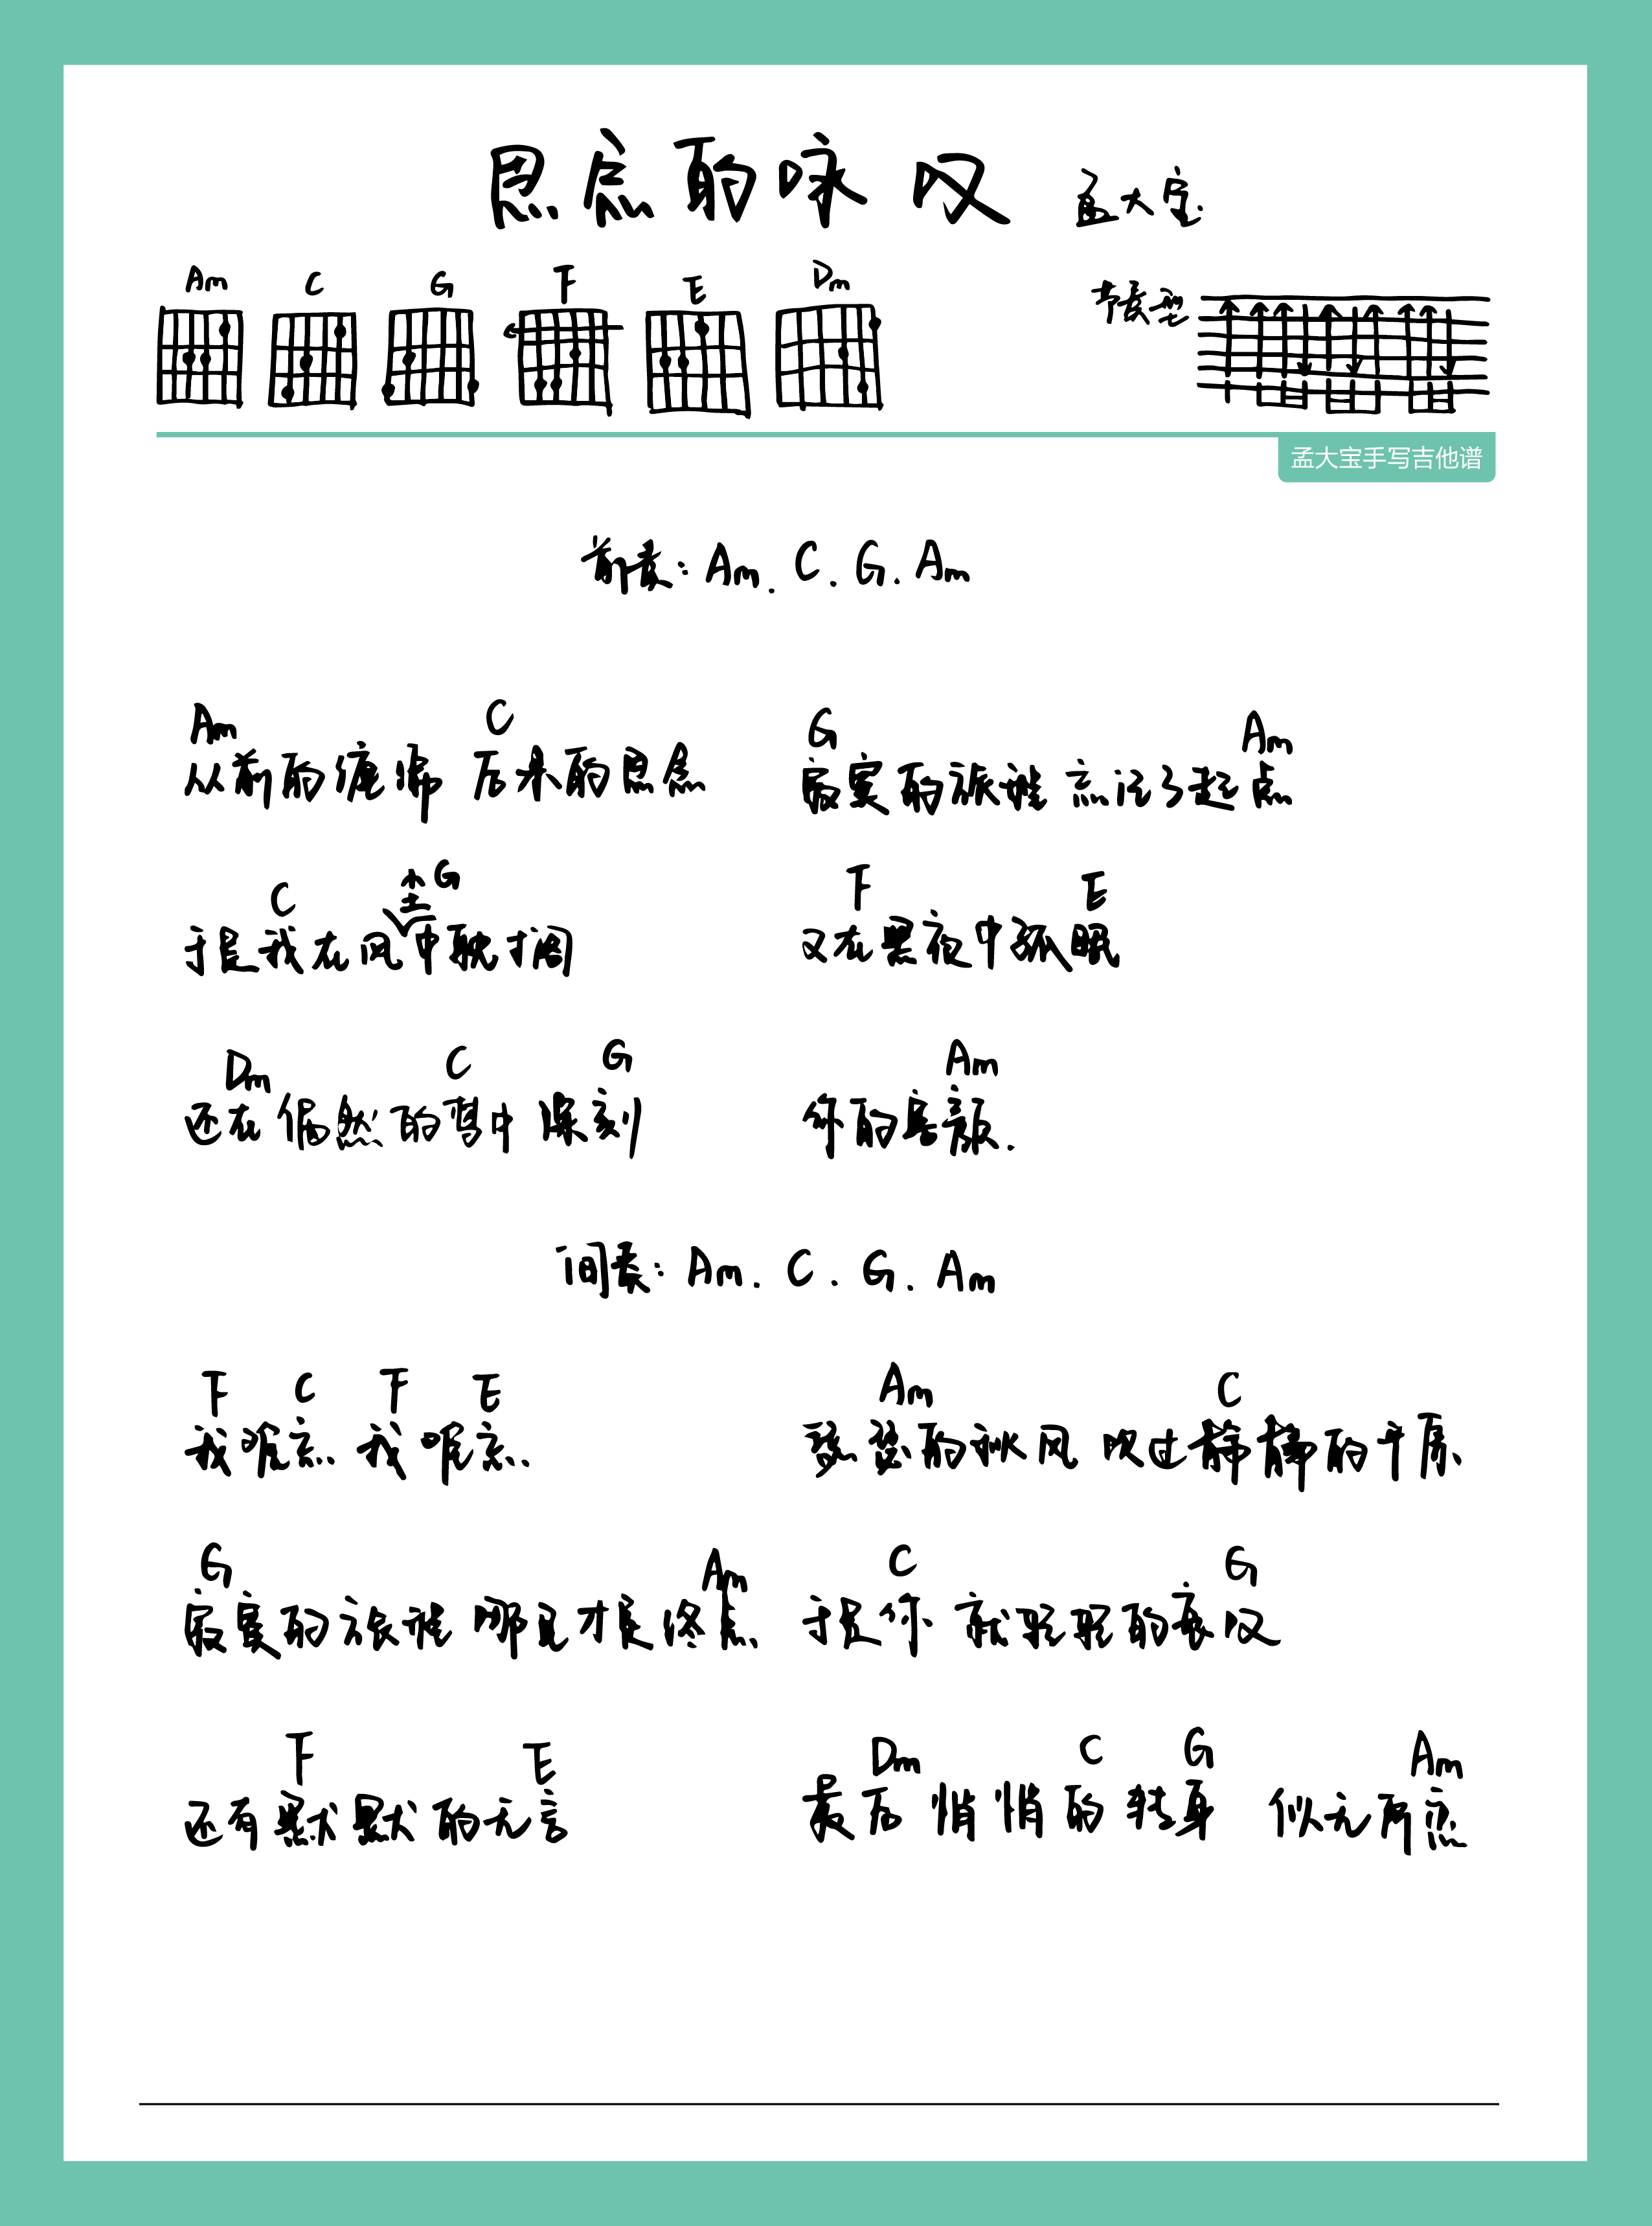 思念的咏叹 孟大宝
Am C G F E Dm 节奏型
孟大宝手写吉他谱
前奏: Am. C. G. Am
Am C G Am
从前的缠绵 后来的思念 寂寞的旅程 忘记了起点
C 尘 G F E
于是我在风中耽搁 又在黑夜中孤眠
Dm C G Am
还在偶然的梦中 深刻 你的容颜.
间奏: Am. C. G. Am
F C F E Am C
我难忘 我难忘 瑟瑟的秋风 吹过静静的平原
G Am C G
寂寞的旅程 哪里才是终点 于是你 就轻轻的哀叹
F E Dm C G Am
还有默默的无言 最后悄悄的转身 似无所恋